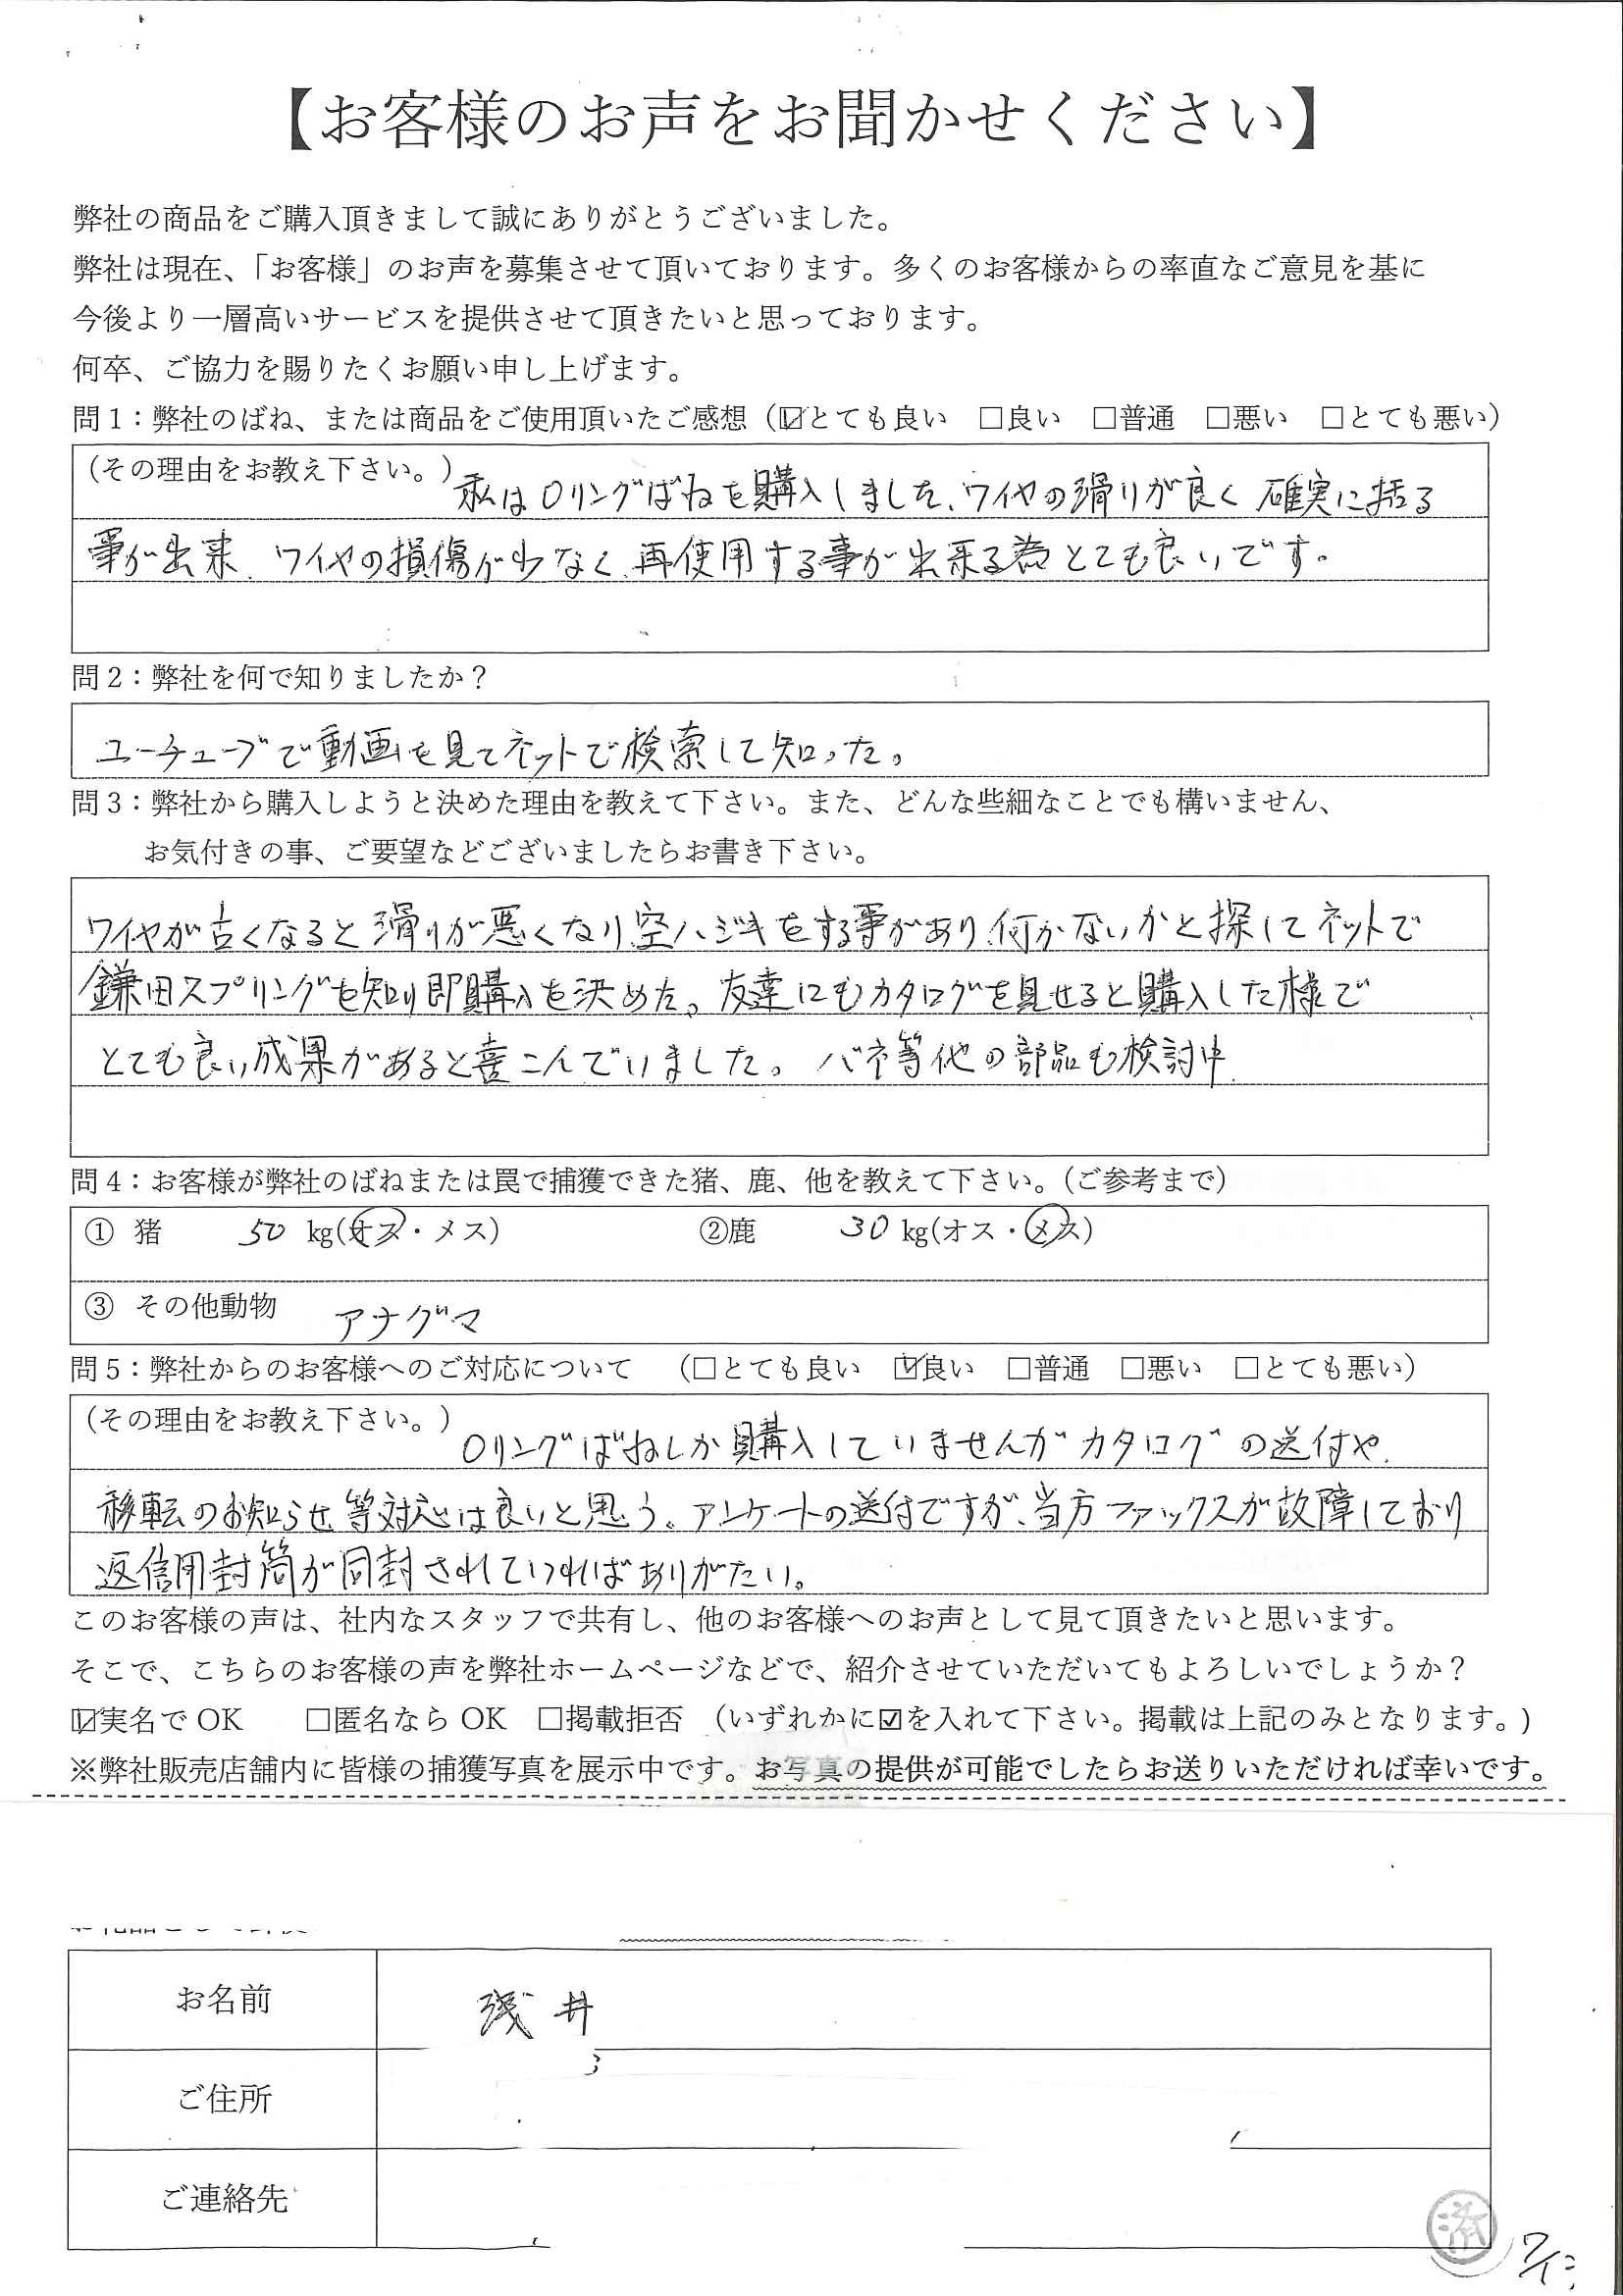 【お客様のお声をお聞かせください】
弊社の商品をご購入頂きまして誠にありがとうございました。
弊社は現在、「お客様」のお声を募集させて頂いております。多くのお客様からの率直なご意見を基に
今後より一層高いサービスを提供させて頂きたいと思っております。
何卒、ご協力を賜りたくお願い申し上げます。
問1：弊社のばね、または商品をご使用頂いたご感想（☑とても良い　□良い　□普通　□悪い　□とても悪い）
（その理由をお教え下さい。）私はOリングばねを購入しました、ワイヤの滑りが良く 確実に括る
事が出来、ワイヤの損傷が少なく、再使用する事が出来る為とても良いです。
問2：弊社を何で知りましたか？
ユーチューブで動画を見てネットで検索して知った。
問3：弊社から購入しようと決めた理由を教えて下さい。また、どんな些細なことでも構いません、
お気付きの事、ご要望などございましたらお書き下さい。
ワイヤが古くなると滑りが悪くなり、空ハジキをする事があり、何かないかと探してネットで
鎌田スプリングを知り即購入を決めた。友達にもカタログを見せると購入した様で
とても良い成果があると喜こんでいました。バネ等他の部品も検討中
問4：お客様が弊社のばねまたは罠で捕獲できた猪、鹿、他を教えて下さい。（ご参考まで）
① 猪　50 kg(オス・メス)　②鹿　30 kg(オス・メス)
③ その他動物　アナグマ
問5：弊社からのお客様へのご対応について　（□とても良い　☑良い　□普通　□悪い　□とても悪い）
（その理由をお教え下さい。）Oリングばねしか購入していませんがカタログの送付や、
移転のお知らせ等対応は良いと思う。アンケートの送付ですが、当方ファックスが故障しており
返信用封筒が同封されていればありがたい。
このお客様の声は、社内なスタッフで共有し、他のお客様へのお声として見て頂きたいと思います。
そこで、こちらのお客様の声を弊社ホームページなどで、紹介させていただいてもよろしいでしょうか？
☑実名でOK　□匿名ならOK　□掲載拒否　（いずれかに☑を入れて下さい。掲載は上記のみとなります。)
※弊社販売店舗内に皆様の捕獲写真を展示中です。お写真の提供が可能でしたらお送りいただければ幸いです。
お名前　浅井
ご住所
ご連絡先
済